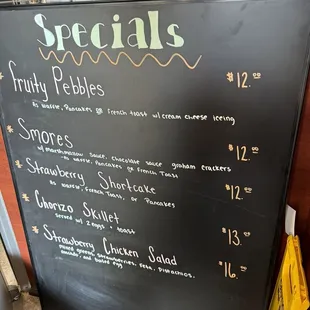 Specials
Fruity Pebbles $12.00
As waffle, Pancakes or French toast w/ cream cheese iceing
Smores $12.00
w/ marshmallow sauce, chocolate sauce graham crackers
as waffle, pancakes or French Toast
Strawberry Shortcake $12.00
as waffle, French Toast, or Pancakes
Chorizo Skillet $13.00
Served w/ 2 eggs + toast
Strawberry Chicken Salad $16.00
mixed greens, Strawberries, Feta, Pistachios,
and boiled egg